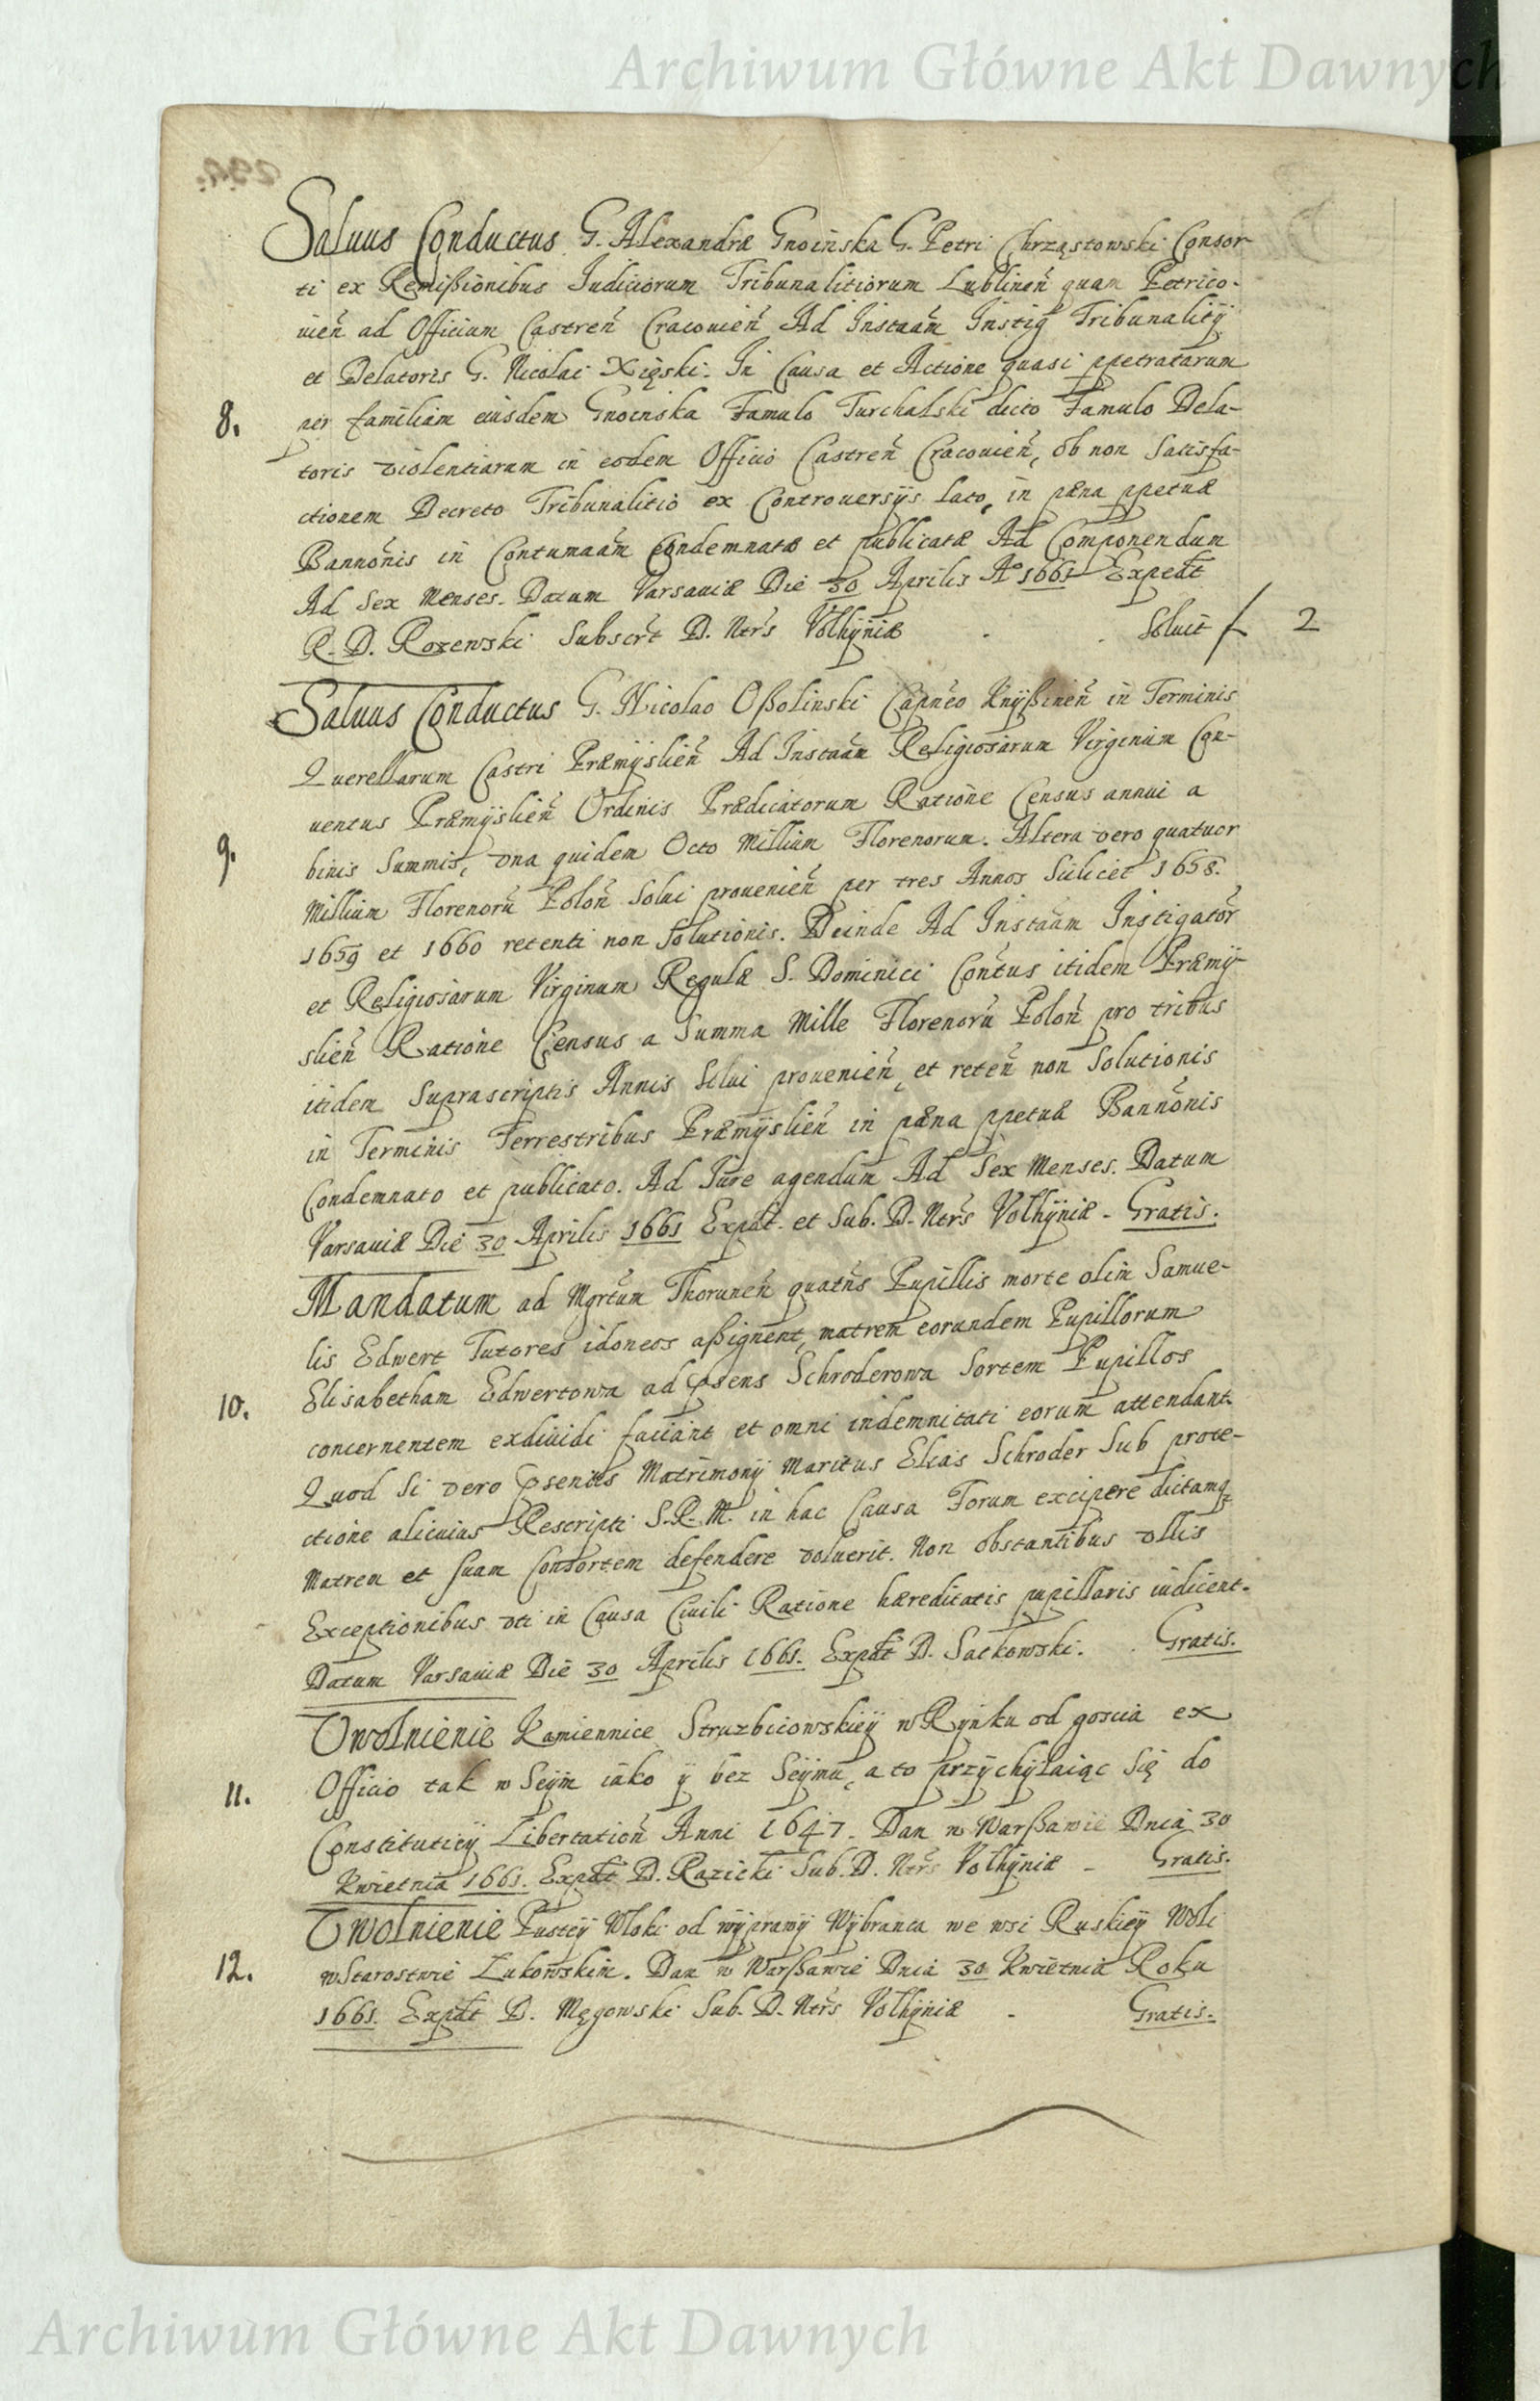 Archiwum Główne Akt Dawnych
Saluus Conductus G. Alexandræ Gnoińska G. Petri Chrząstowski Consor-
ti ex Remißionibus Iudiciorum Tribunalitiorum Lublinen̄ quam Petrico-
uien̄ ad Officium Castren̄ Cracouien̄ Ad Instaām Instig Tribunalitÿ
et Delatoris G. Nicolai Xięski. In Causa et Actione quasi ppetratarum
8. per familiam eiusdem Gnoinska Famulo Turchalski dicto Famulo Dela-
toris violentiarum in eodem Officio Castren̄ Cracouien̄, ob non Satisfa-
ctionem Decreto Tribunalitio ex Controuersijs lato, in pæna ppetuæ
Bannōnis in Contumaām Condemnatæ et publicatæ Ad Componendum
Ad Sex Menses. Datum Varsauiæ Die 30 Aprilis Aº 1661 Expedt
R. D. Rozewski Subscrt D. Ntrs Volhÿniæ . . Soluit f 2
Saluus Conductus G. Nicolao Oßolinski Capneo Knÿßinen̄ in Terminis
Querellarum Castri Præmÿslien̄ Ad Instaām Religiosarum Virginum Con-
uentus Præmÿslien̄ Ordinis Prædicatorum Ratione Census annui a
9. binis Summis, vna quidem Octo Millium Florenorum. Altera vero quatuor
Millium Florenorū Polon̄ Solui prouenien̄ per tres Annos Scilicet 1658.
1659 et 1660 retenti non Solutionis. Deinde Ad Instaām Instigator
et Religiosarum Virginum Regulæ S. Dominici Contus itidem Præmÿ-
slien̄ Ratione Census a Summa Mille Florenorū Polon̄ pro tribus
itidem Suprascriptis Annis Solui prouenien̄, et reten̄ non Solutionis
in Terminis Terrestribus Præmÿslien̄ in pæna ppetuæ Bannōnis
Condemnato et publicato. Ad Iure agendum Ad Sex Menses. Datum
Varsauiæ Die 30 Aprilis 1661 Expdt. et Sub. D. Ntrs Volhÿniæ - Gratis.
Mandatum ad Mgrtum Thorunen̄ quatns Pupillis morte olim Samue-
lis Edwert Tutores idoneos aßignent, matrem eorundem Pupillorum
10. Elisabetham Edwertowa ad psens Schroderowa Sortem Pupillos
concernentem exdiuidi faciant et omni indemnitati eorum attendant.
Quod Si vero psentis Matrimonÿ Maritus Elias Schroder Sub prote-
ctione alicuius Rescripti S.R.M. in hac Causa Forum excipere dictamq
Matrem et suam Consortem defendere voluerit. Non obstantibus vllis
Exceptionibus vti in Causa Ciuili Ratione hæreditatis pupillaris iudicent.
Datum Varsauiæ Die 30 Aprilis 1661. Expdt D. Sackowski. . Gratis.
Vwolnienie Kamiennice Struzbicowskieÿ w Rÿnku od goscia ex
11. Officio tak w Seÿm iako ÿ bez Seÿmu, a to przÿchÿlaiąc Się do
Constitutieÿ Libertation̄ Anni 1647. Dan w Warßawie Dnia 30
Kwietnia 1661. Expdt D. Razicki Sub. D. Ntrs Volhÿniæ - Gratis.
Vwolnienie Pusteÿ Wloki od wÿprawÿ Wÿbranca we wsi Ruskieÿ Woli
12. w Starostwie Lukowskim. Dan w Warßawie Dnia 30 Kwietnia Roku
1661. Expdt D. Męgowski Sub. D. Ntrs Volhÿniæ - Gratis.
Archiwum Główne Akt Dawnych